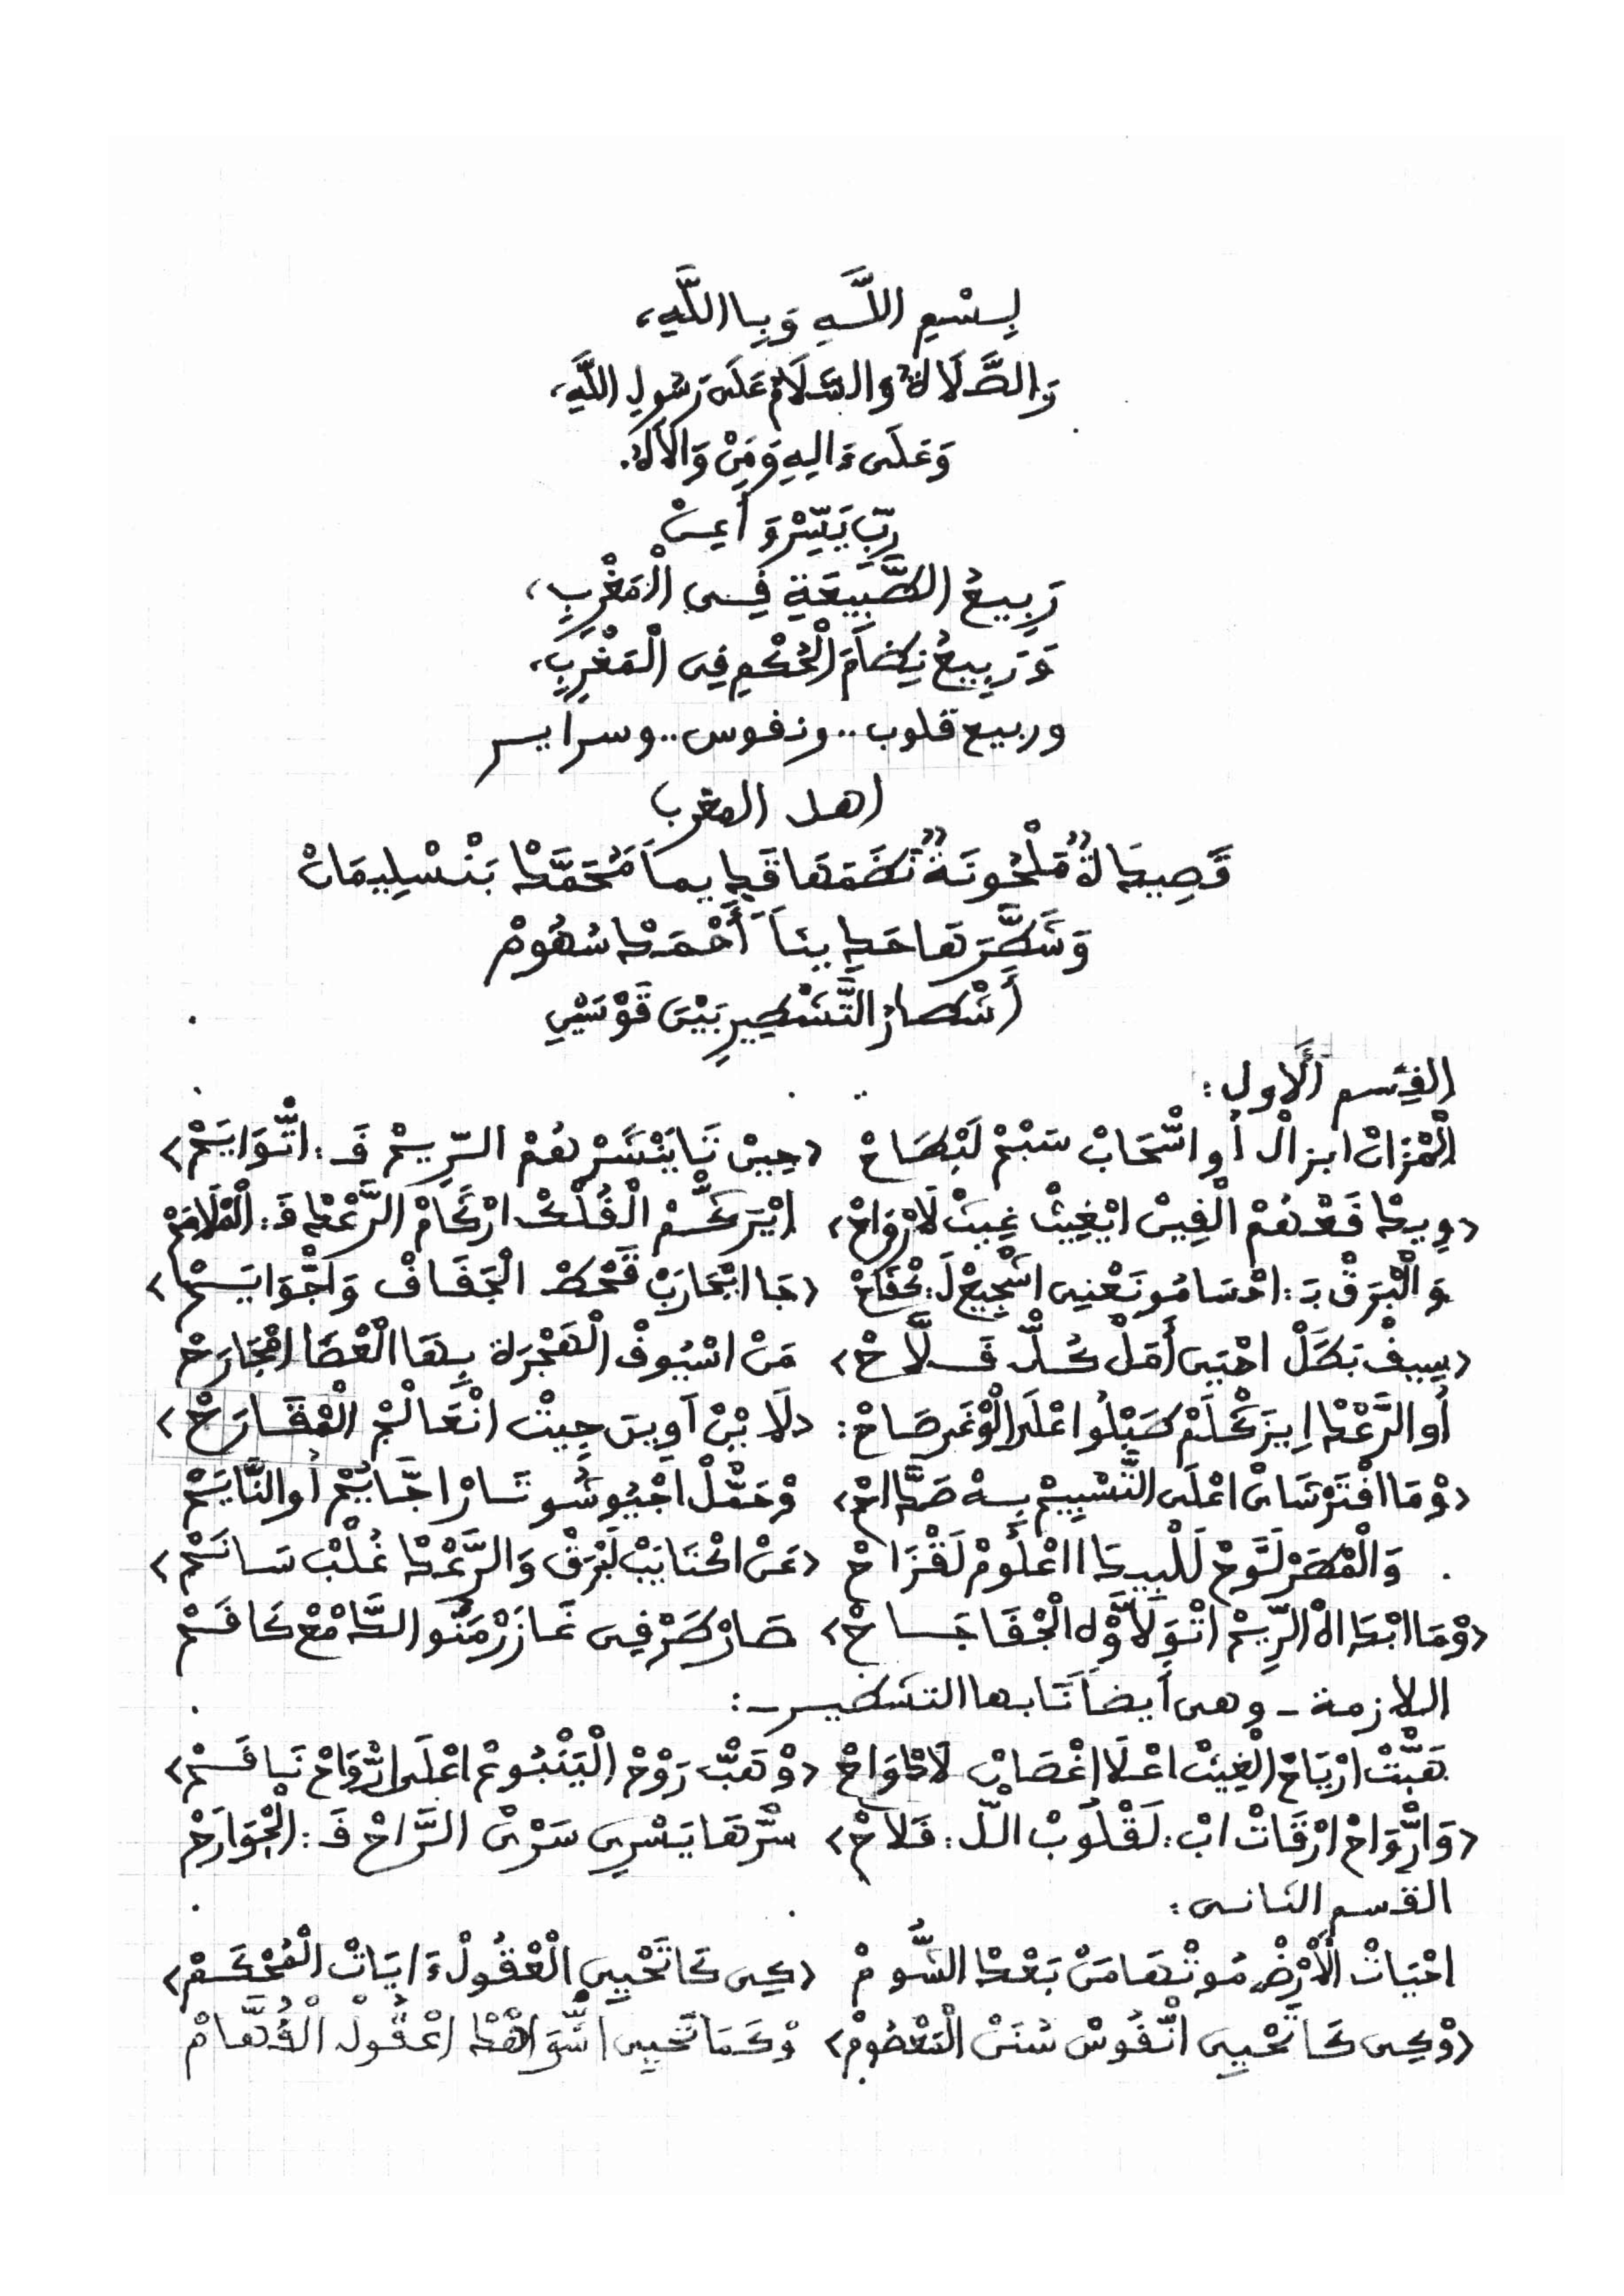 بِسْمِ اللَّهِ وَبِاللَّهِ،
وَالصَّلَاةُ وَالسَّلَامُ عَلَى رَسُولِ اللَّهِ،
وَعَلَى ءَالِهِ وَمَنْ وَالَاهُ.
رَبِّ يَسِّرْ وَأَعِنْ
رَبِيعُ الطَّبِيعَةِ فِي الْمَغْرِبِ،
وَرَبِيعُ نِظَامَ الْحُكْمِ فِي الْمَغْرِبِ،
وربيع قلوب.. ونفوس.. وسراير
اهل المغرب
قَصِيدَةٌ مَلْحُونَةٌ نَظَمَهَا قَدِيماً مُحَمَّدْ بَنْسْلِيمَانْ
وَشَطَّرَهَا حَدِيثاً أَحْمَدْ سُهُومْ
أَشْطَارُ التَّشْطِيرِ بَيْنَ قَوْسَيْنِ
القسم الأول:
الْمْزَانْ ابزالْ أُو السّْحَابْ سَبْحْ لَبْطَاحْ ‹حِينْ تَا يَنْشَرْهُمْ الرِّيحْ فَ: اتّْوَايَحْ›
‹وِيدَفَعْهُمْ الْفِينْ ايْغِيثْ غِيثْ لَارْوَاحْ› ايْتَرْكَّحْ الْفُلْكْ ارْكَامْ الرَّعْدْ فَ: الْمْلَامَحْ
وَالْبَرْقْ بَ: احْسَامُو نَعْنِي اشْجِيعْ لَ: كْفَاحْ ‹جَا ايْحَارَبْ قَحْطْ الْجَفَافْ وَاجّْوَايَحْ›
‹سِيفْ بَطَلْ احْيَى أَمَلْ كُلّْ فَلَّاحْ› مَنْ اسْيُوفْ الْهَجْرَة بِهَا الْعْضَا امْجَارَحْ
أُو الرَّعْدْ ايْزَكْلَمْ طَبْلُو اعْلَى الْوْغَى صَاحْ: ‹لَا بْنْ آوِينَ جِيتْ انْعَالَجْ الْمْقَارَحْ›
‹وْمَا افْتَرْشَانْ اعْلَى التَّسْبِيحْ بِهْ صَدَّاحْ› وْحَمّْلْ اجْيُوشُو تَارْ اجَّايَحْ أُو النَّايَحْ
وَالْمْطَرْ لَوَّحْ لَلْبِيدَا اعْلُومْ لَقْزَاحْ ‹عَنْ اكْتَايَبْ لَبْرَقْ وَالرَّعْدْ غُلْبْ سَانَحْ›
‹وْمَا ابْدَاهْ الرِّيحْ اتْوَلَّاوْلْ الْجْفَا جَاحْ› صَارْ طَرْفِي غَازَرْ مَنُّو الدَّامْعْ كَافَحْ
اللازمة - وهي أيضاً نابها التشطير -:
هَبّْتْ ارْيَاحْ الْغِيثْ اعْلَا اغْصَانْ لَادْوَاحْ ‹وْتْهَبّْ رَوْحْ الْيَنْبُوعْ اعْلَى ارّْوَاحْ نَافَحْ›
‹وَارّْوَاحْ ارْقَاتْ ابْ: لَقْلُوبْ الْلّ: فَلَاحْ› سْرّْهَا يَسْرِي سَرْيْ الرَّاحْ فَ: الْجْوَارَحْ
القسم الثاني:
احْيَاتْ الْأَرْضْ مُوتْهَا مَنْ بَعْدْ السُّومْ ‹كِي كَا تَحْيِي الْعْقُولْ ءَايَاتْ الْمُحْكَمْ›
‹وْكِي كَا تَحْيِي انّْفُوسْ سُنَنْ الْمَعْصُومْ› وْكَمَا تَحْيِي اشّْوَاهْدْ اعْقُولْ الْفُهَّامْ